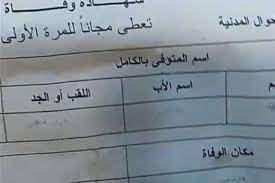 شهادة وفاة
حوال المدنية
تعطى مجاناً للمرة الأولى
اسم المتوفى بالكامل
اسم الأب
اللقب أو الجد
مكان الوفاة